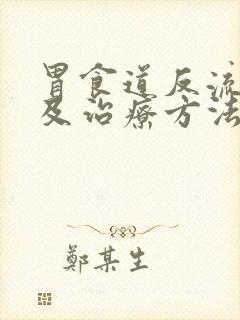 胃食道反流
及治療方法
鄭某生